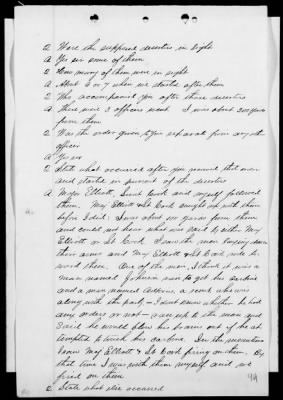 Q Were the supposed deserters in sight
A Yes sir some of them
Q How many of them were in sight
A About 6 or 7 when we started after them
Q Who accompanied you after those deserters
A There were 3 officers went. I was about 300 yards
from them
Q Was the order given to you separate from any other
officer
A Yes sir
Q State what occurred after you received that order
and started in pursuit of the deserters
A Major Elliott, Lieut Cook and myself followed
them. Maj Elliott & Lt Cook caught up with them
before I did. I was about 300 yards from them
and could not hear what was said to either Maj
Elliott or Lt Cook. I saw the men laying down
their arms and Maj Elliott & Lt Cook rode to-
ward them. One of the men, I think it was a
man named Johnson ran to get his carbine
and a man named Atkins, a scout who was
along with the party - I dont know whether he had
any orders or not - ran up to the man and
said he would blow his brains out if he at-
tempted to reach his carbine. In the meantime
I saw Maj Elliott & Lt Cook firing on them. By
that time I was with them myself and we
fired on them
Q State what else occurred
94